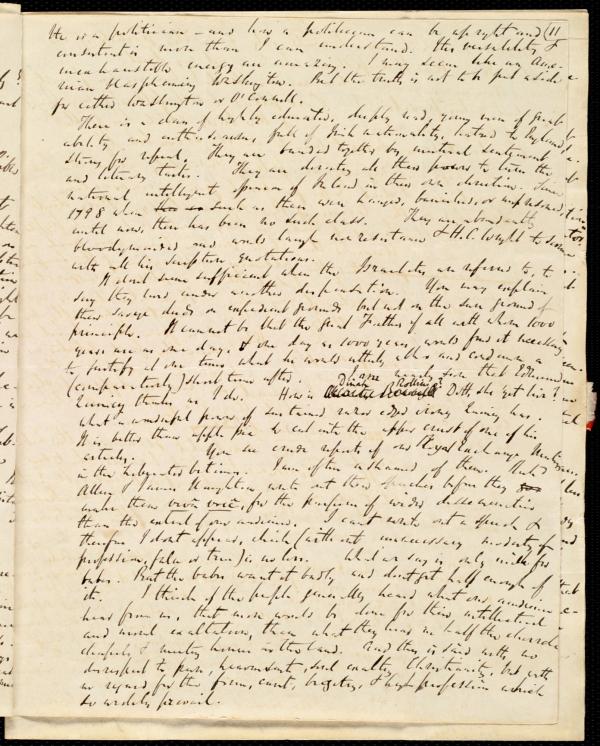 He is a politician – and how a politician can be upright and (11
consistent is more than I can understand. His versatility &
inexhaustible energy are amazing. I may seem like an Ame-
rican blaspheming Washington. But the truth is not to be put aside
for either Washington or O'Connell.
There is a class of highly educated, deeply read, young men of great
ability and enthusiasm, full of Irish nationality, hatred to England,
strong for repeal. They are banded together by mutual sentiment
and literary tastes. They are devoting all their powers to turn the
national intelligent opinion of Ireland in their own direction. Since
1798 when such as them were hanged, banished, or imprisoned
until now, there has been no such class. They are abundantly
bloodyminded and would laugh nonresistance & H.C. Wright to scorn
with all his scripture quotations.
It don't seem sufficient when the Israelites are referred to, to
say they lived under another dispensation. You may explain
their savage deeds on expedient grounds but not on the sure ground of
principle. It cannot be that the great Father of all with whom 1000
years are as one day, & one day as 1000 years, would find it necessary
to justify at one time what he would utterly abhor and condemn a
(comparatively) short time after. I am nearly sure that Edmund
Quincy thinks as I do. How is Dinah Rollins? Doth she get
what a wonderful power of sustained Edmund Quincy has.
It is better than apple pie to cut into the upper crust of one of his
articles. You see crude reports of our Royal Exchange Meetings
in the I am often ashamed of them. That
Allen & James Haughton write out their speeches before they
make them viva voce, for the purpose of wider dissemination
than the extent of our audience. I can't write out a speech &
therefore I don't appear, which (without unnecessary modesty, or
profession, false or true) is no loss. What we say is only milk for
babes. But the babes want it badly and don't get half enough of
it. I think if the people generally heard what our audience
hear from us, that more would be done for their intellectual
and moral exaltation, than what they hear in half the churches
chapels & meeting houses in the land. And this is said with no
disrespect to pure, benevolent, soul exalting Christianity, but with
no regard for the form, cant, bigotry, & high profession which
so widely prevail.